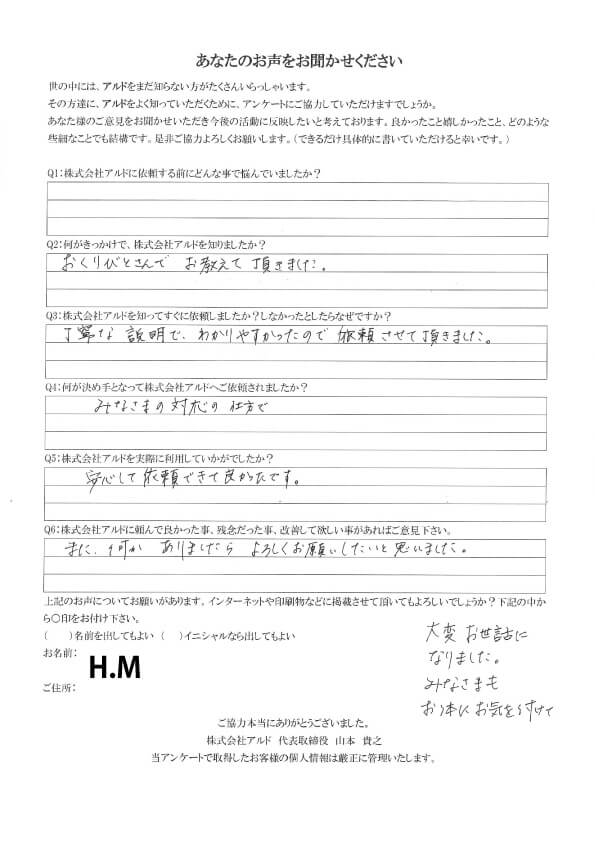 あなたのお声をお聞かせください
世の中には、アルドをまだ知らない方がたくさんいらっしゃいます。
その方達に、アルドをよく知っていただくために、アンケートにご協力していただけますでしょうか。
あなた様のご意見をお聞かせいただき今後の活動に反映したいと考えております。良かったこと嬉しかったこと、どのような
些細なことでも結構です。是非ご協力よろしくお願いします。(できるだけ具体的に書いていただけると幸いです。)
Q1:株式会社アルドに依頼する前にどんな事で悩んでいましたか?
Q2:何がきっかけで、株式会社アルドを知りましたか?
おくりびとさんで お教えて頂きました。
Q3:株式会社アルドを知ってすぐに依頼しましたか?しなかったとしたらなぜですか?
丁寧な説明で、わかりやすかったので依頼させて頂きました。
Q4:何が決め手となって株式会社アルドへご依頼されましたか?
みなさまの対応の仕方で
Q5:株式会社アルドを実際に利用していかがでしたか?
安心して依頼できて良かったです。
Q6:株式会社アルドに頼んで良かった事、残念だった事、改善して欲しい事があればご意見下さい。
また、何か ありましたら よろしくお願いしたいと思いました。
上記のお声についてお願いがあります。インターネットや印刷物などに掲載させて頂いてもよろしいでしょうか?下記の中か
ら〇印をお付け下さい。
( )名前を出してもよい ( )イニシャルなら出してもよい
お名前:
H.M
ご住所:
大変お世話に
なりました。
みなさまも
お体にお気をつけて
ご協力本当にありがとうございました。
株式会社アルド 代表取締役 山本 貴之
当アンケートで取得したお客様の個人情報は厳正に管理いたします。